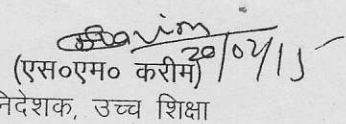 20/02/15
(एस०एम० करीम)
निदेशक, उच्च शिक्षा